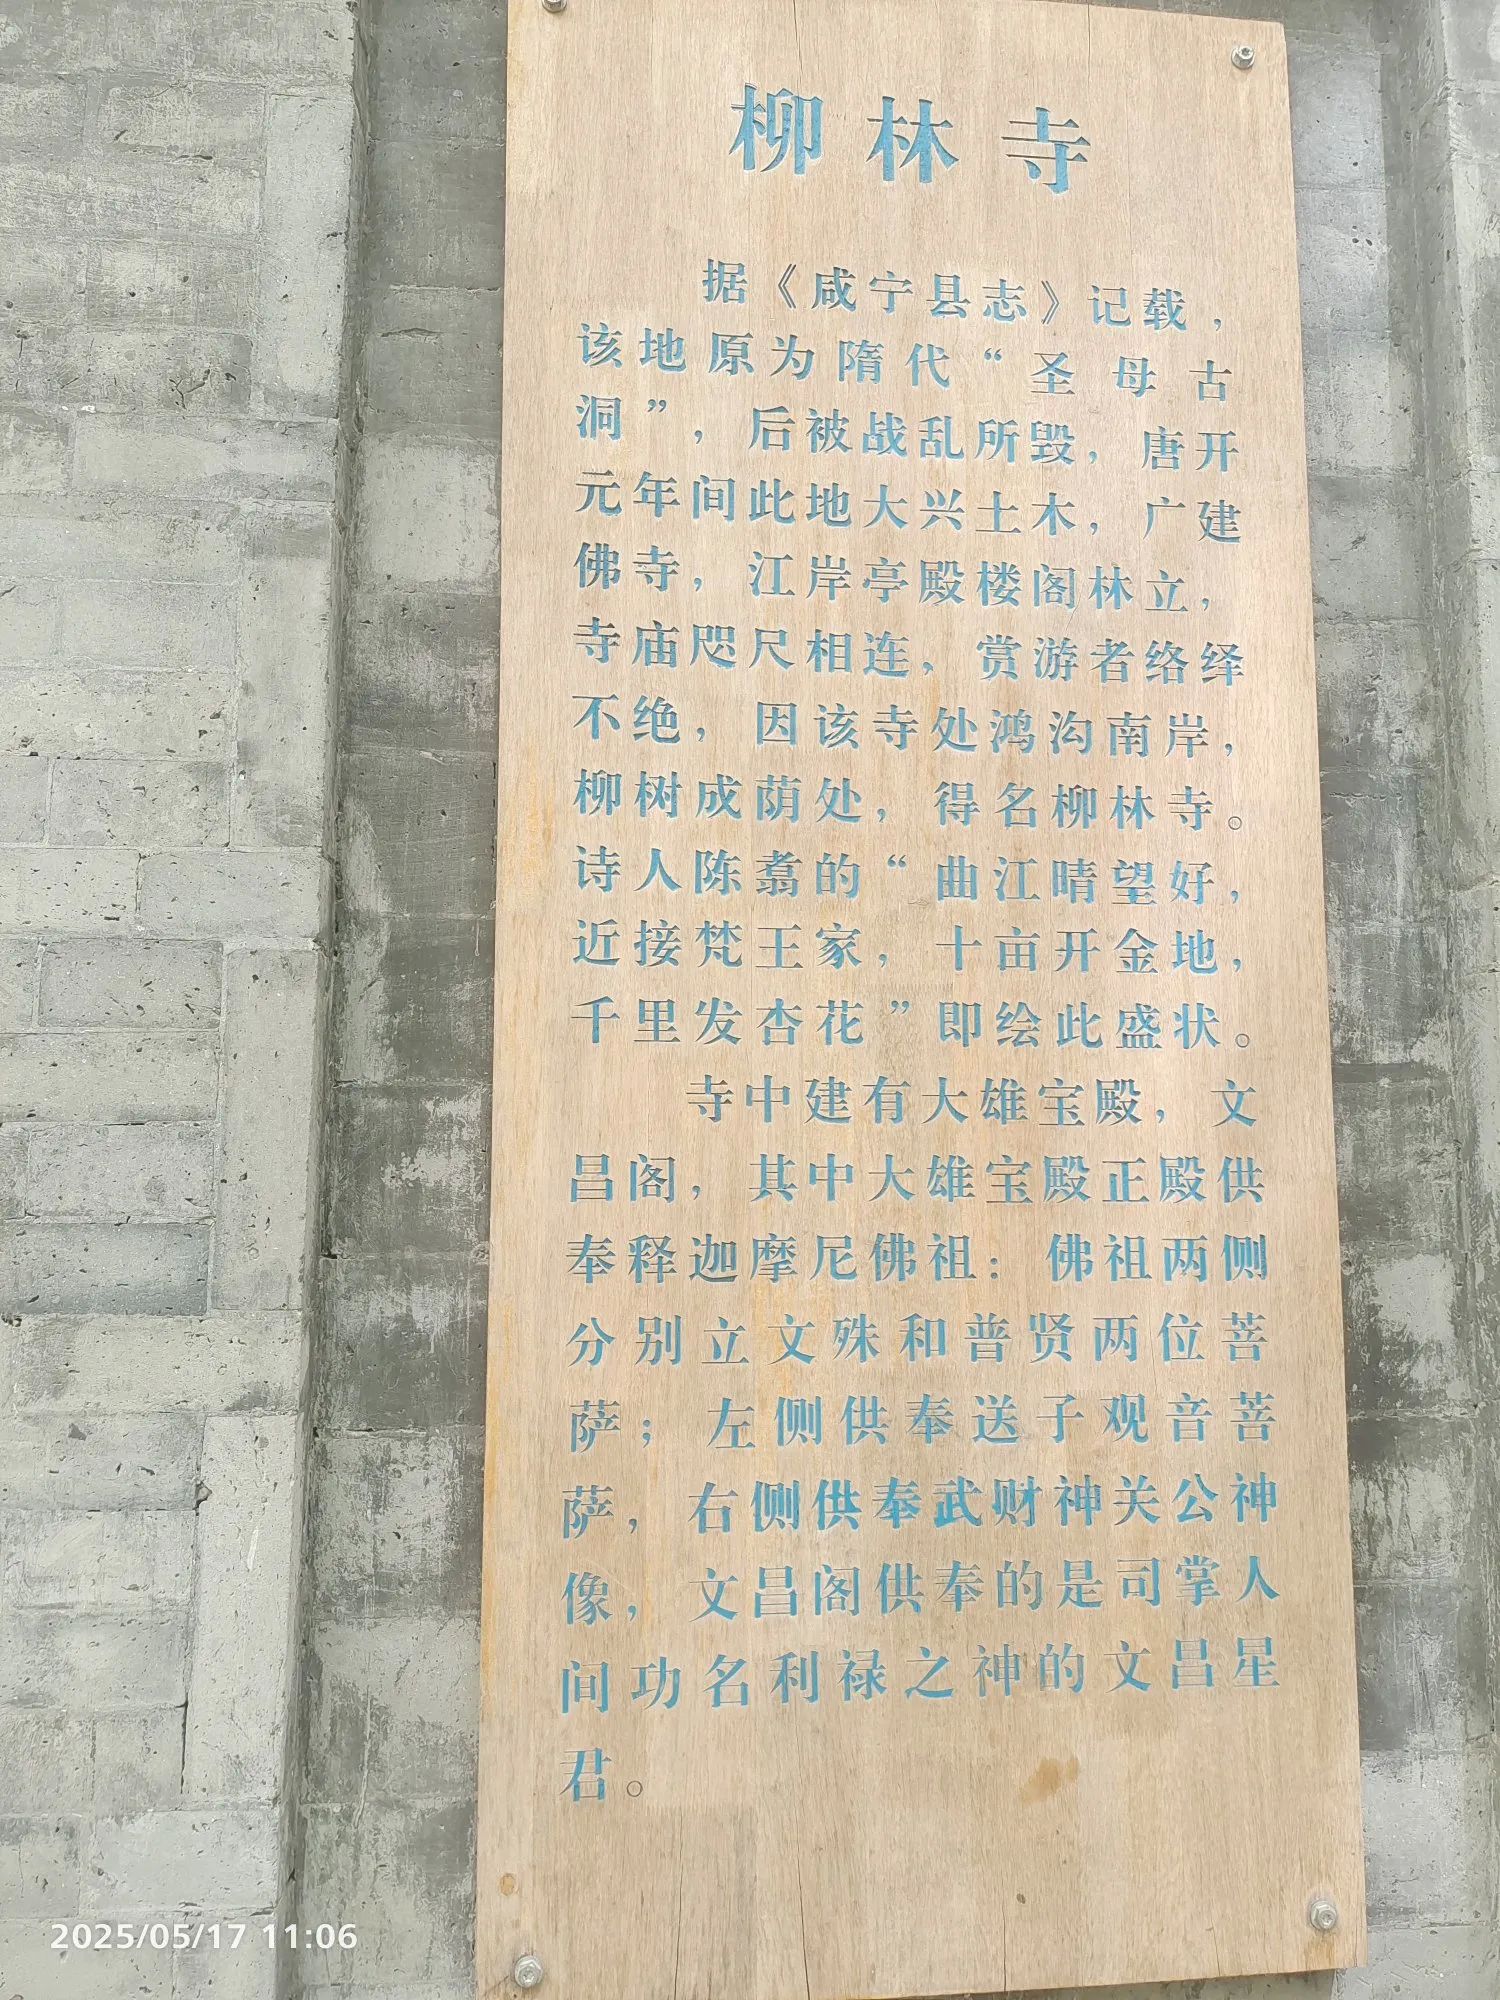 柳林寺
据《咸宁县志》记载，
该地原为隋代“圣母古
洞”，后被战乱所毁，唐开
元年间此地大兴土木，广建
佛寺，江岸亭殿楼阁林立，
寺庙咫尺相连，赏游者络绎
不绝，因该寺处鸿沟南岸，
柳树成荫处，得名柳林寺。
诗人陈翥的“曲江晴望好，
近接梵王家，十亩开金地，
千里发杏花”即绘此盛状。
寺中建有大雄宝殿，文
昌阁，其中大雄宝殿正殿供
奉释迦摩尼佛祖：佛祖两侧
分别立文殊和普贤两位菩
萨；左侧供奉送子观音菩
萨，右侧供奉武财神关公神
像，文昌阁供奉的是司掌人
间功名利禄之神的文昌星
君。
2025/05/17 11:06